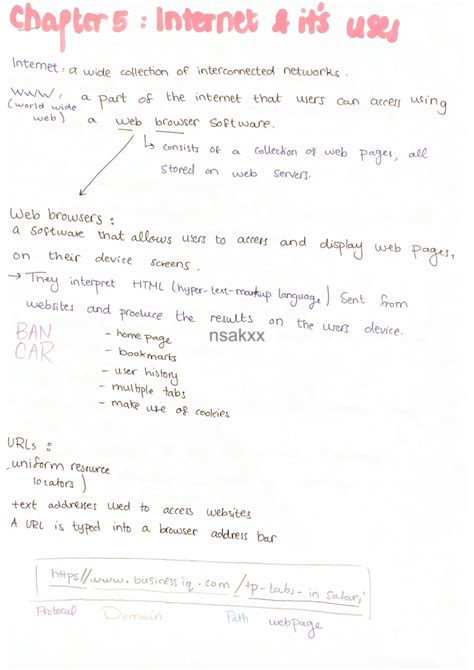 Chapter 5 : Internet & it's uses
Internet : a wide collection of interconnected networks.
WWW : a part of the internet that users can access using
(world wide web) a web browser software.
↳ consists of a collection of web pages, all
stored on web servers.
Web browsers :
a software that allows users to access and display web pages,
on their device screens.
→ They interpret HTML (hyper-text-markup language) sent from
websites and produce the results on the users device.
BAN
CAR
nsakxx
- home page
- bookmarks
- user history
- multiple tabs
- make use of cookies
URLs :
(uniform resource
locators)
text addresses used to access websites
A URL is typed into a browser address bar
https//www.businessiq.com/tp-tabs-in safari
Protocal Domain Path webpage